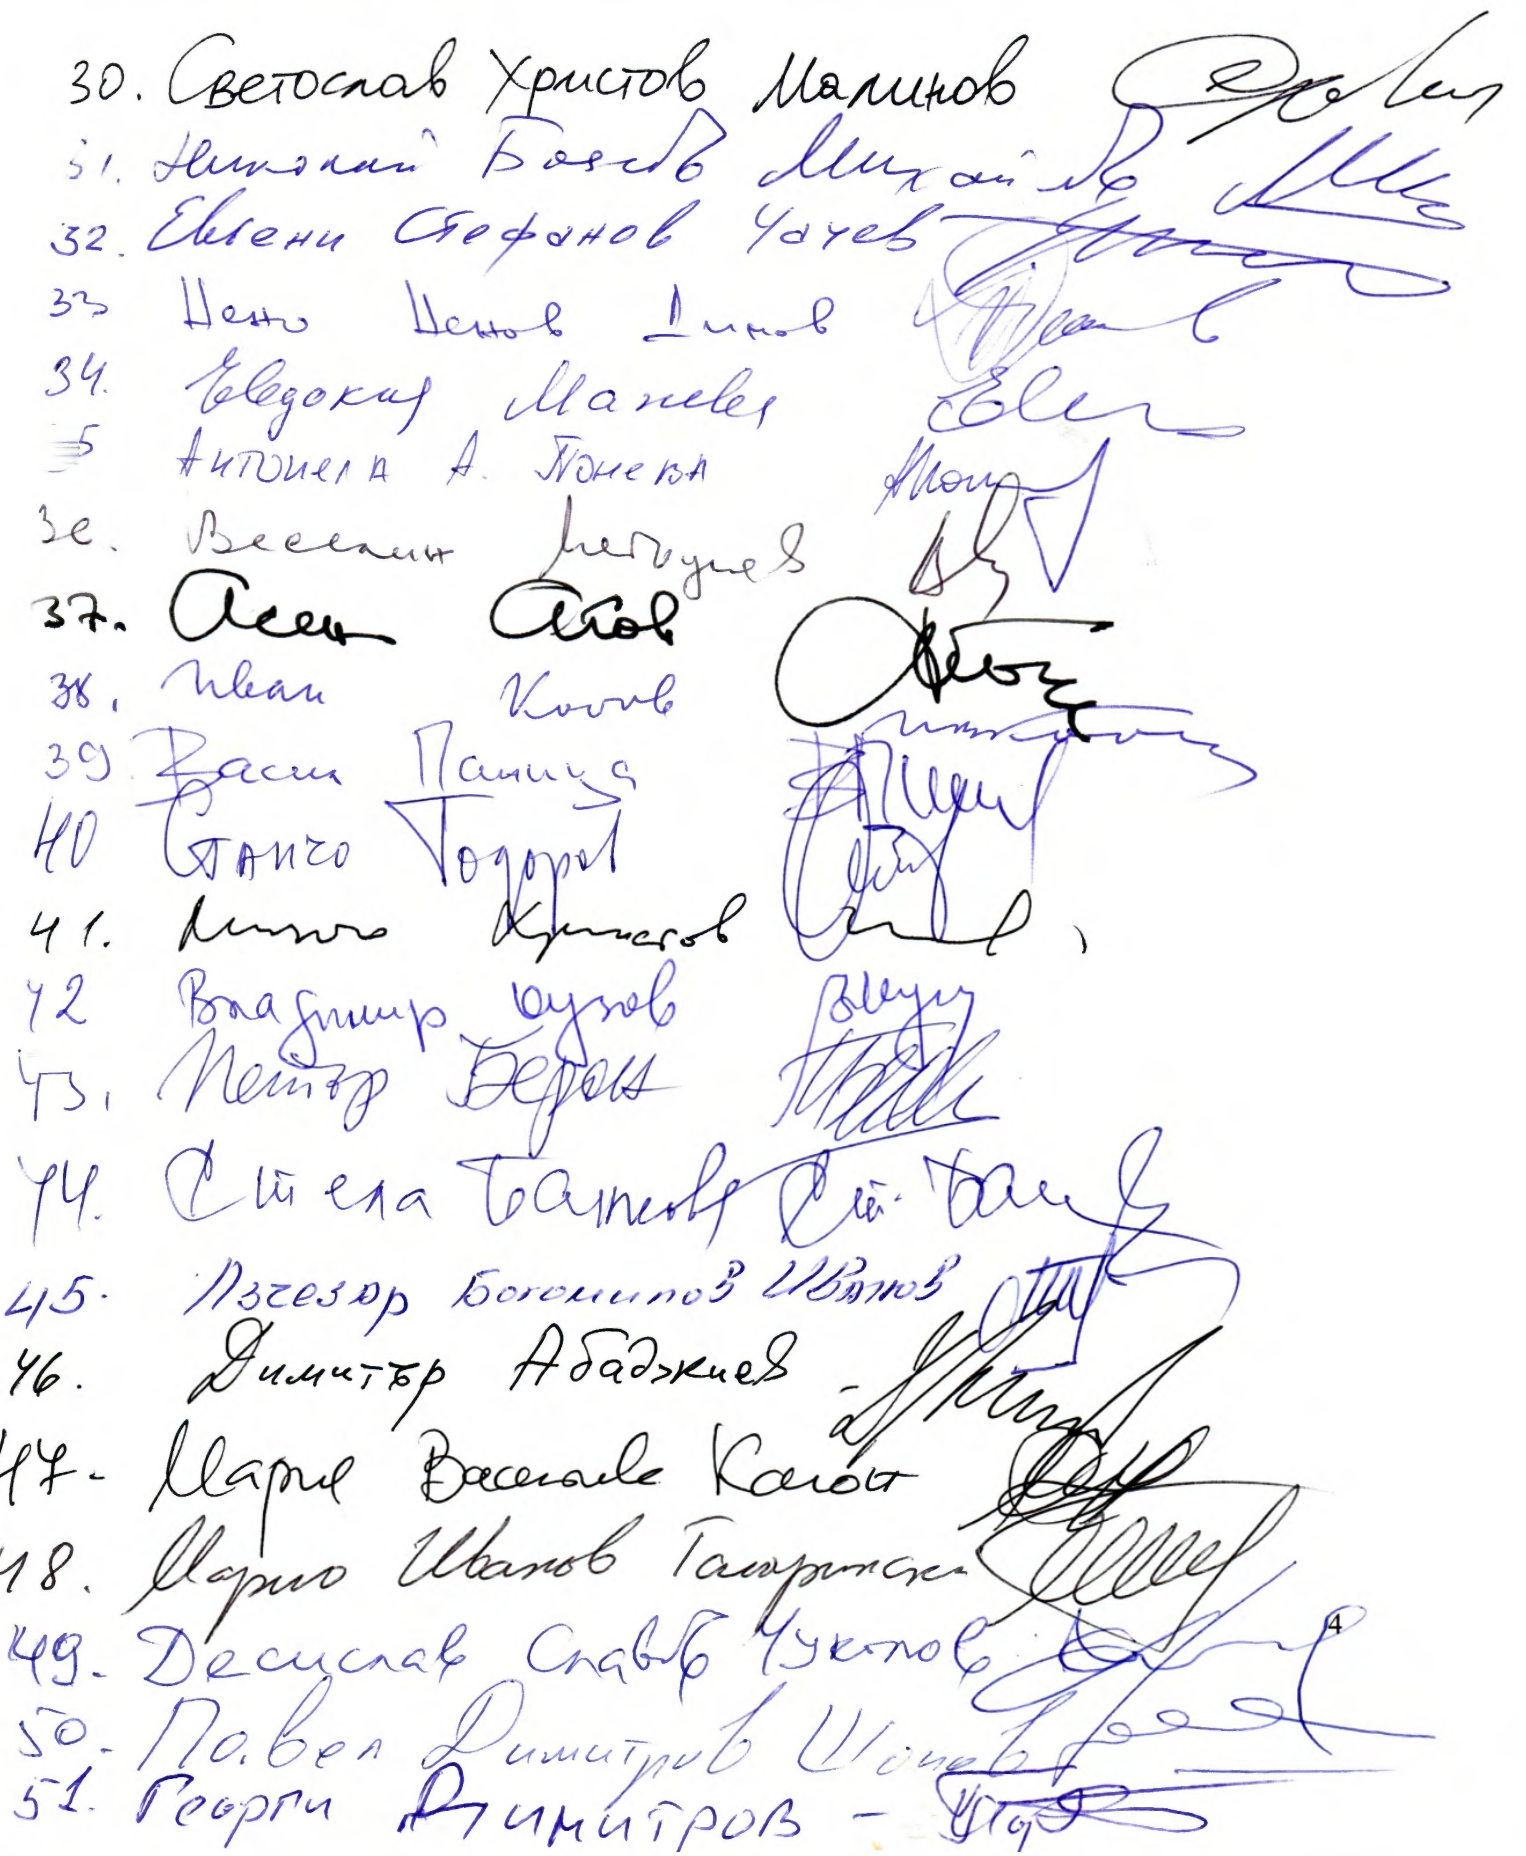 30. Светослав Христов Малинов
31. Николай Боянов Михайлов
32. Евгени Стефанов Чачев
33 Нено Ненов Димов
34. Евдокия Манева
5 Антонела А. Понева
36. Веселин Методиев
37. Асен Агов
38. Иван Костов
39 Васил Паница
40 Станчо Тодоров
41. Минчо Христов
42 Владимир Кузов
43. Петър Берон
44. Стела Банкова
45. Лъчезар Богомилов Иванов
46. Димитър Абаджиев
47. Мария Василева Капон
48. Марио Иванов Тагарински
49. Десислав Славов Чуколов
50. Павел Димитров Шопов
4
51. Георги Димитров -